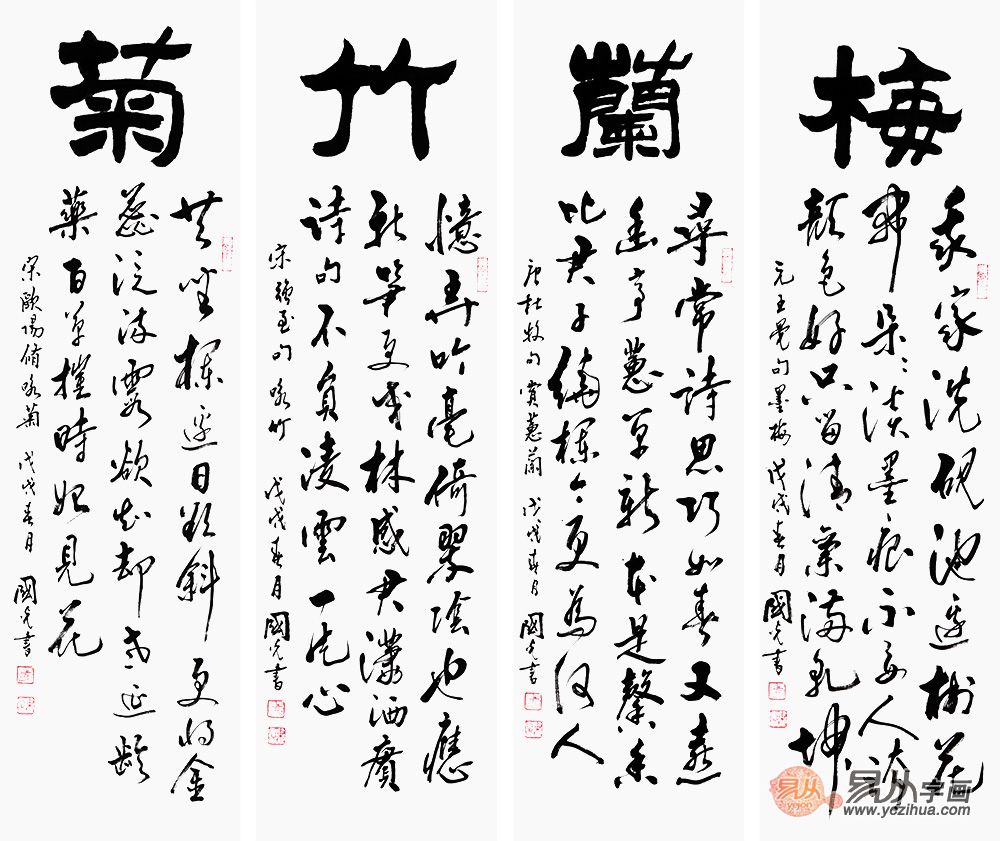 梅
我家洗硯池邊樹花
開朵朵淡墨痕不要人誇
顏色好只留清氣滿乾坤
元王冕句墨梅 戊戌春月 國光書
蘭
尋常詩思巧如春又喜
幽亭蕙草新本是馨香
比君子繞欄今更為何人
唐杜牧句賞蕙蘭 戊戌春月 國光書
竹
憶弄吟毫倚翠陰也應
新筍更成林感君瀟洒賡
詩句不負凌雲一片心
宋 句 咏竹 戊戌春月 國光書
菊
共坐欄邊日欲斜更將金
蕊泛流霞欲知却老延齡
藥百草摧時始見花
宋歐陽脩咏菊 戊戌春月 國光書
易从
yicong
易从字画
www.yozihua.com